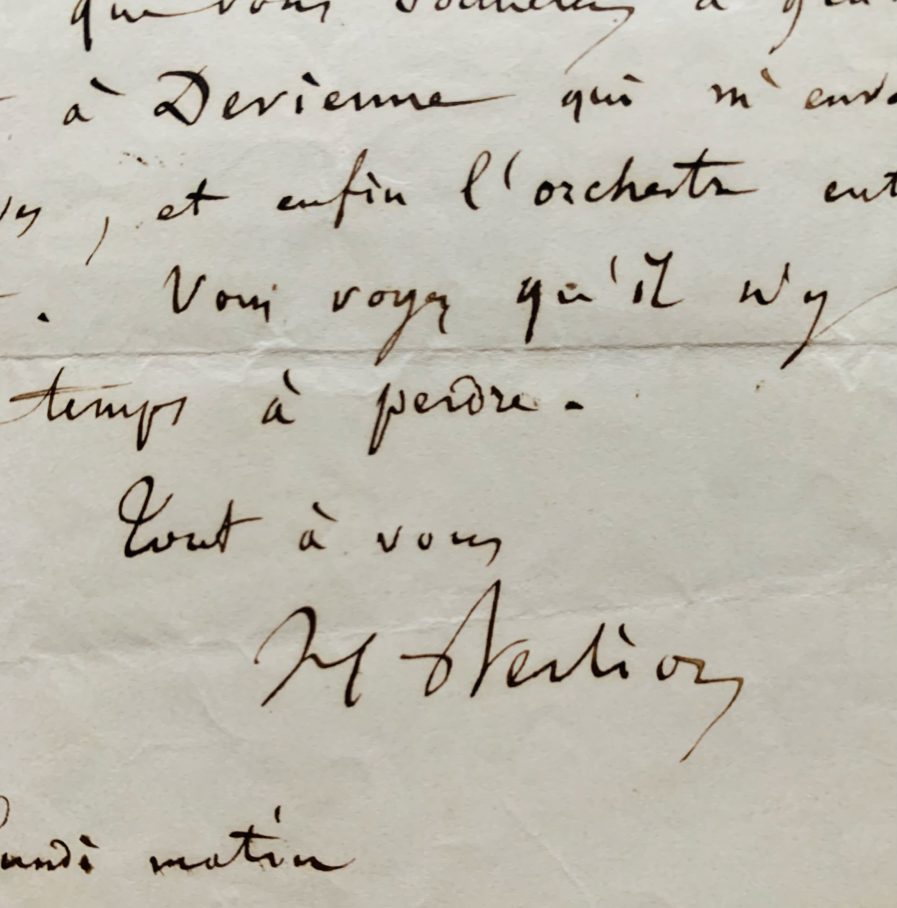 que vous donnerez à
à Derienne qui m'
, et enfin l'orchestre
. Vous voyez qu'il n'y
temps à perdre.
Tout à vous
H Berlioz
Lundi matin